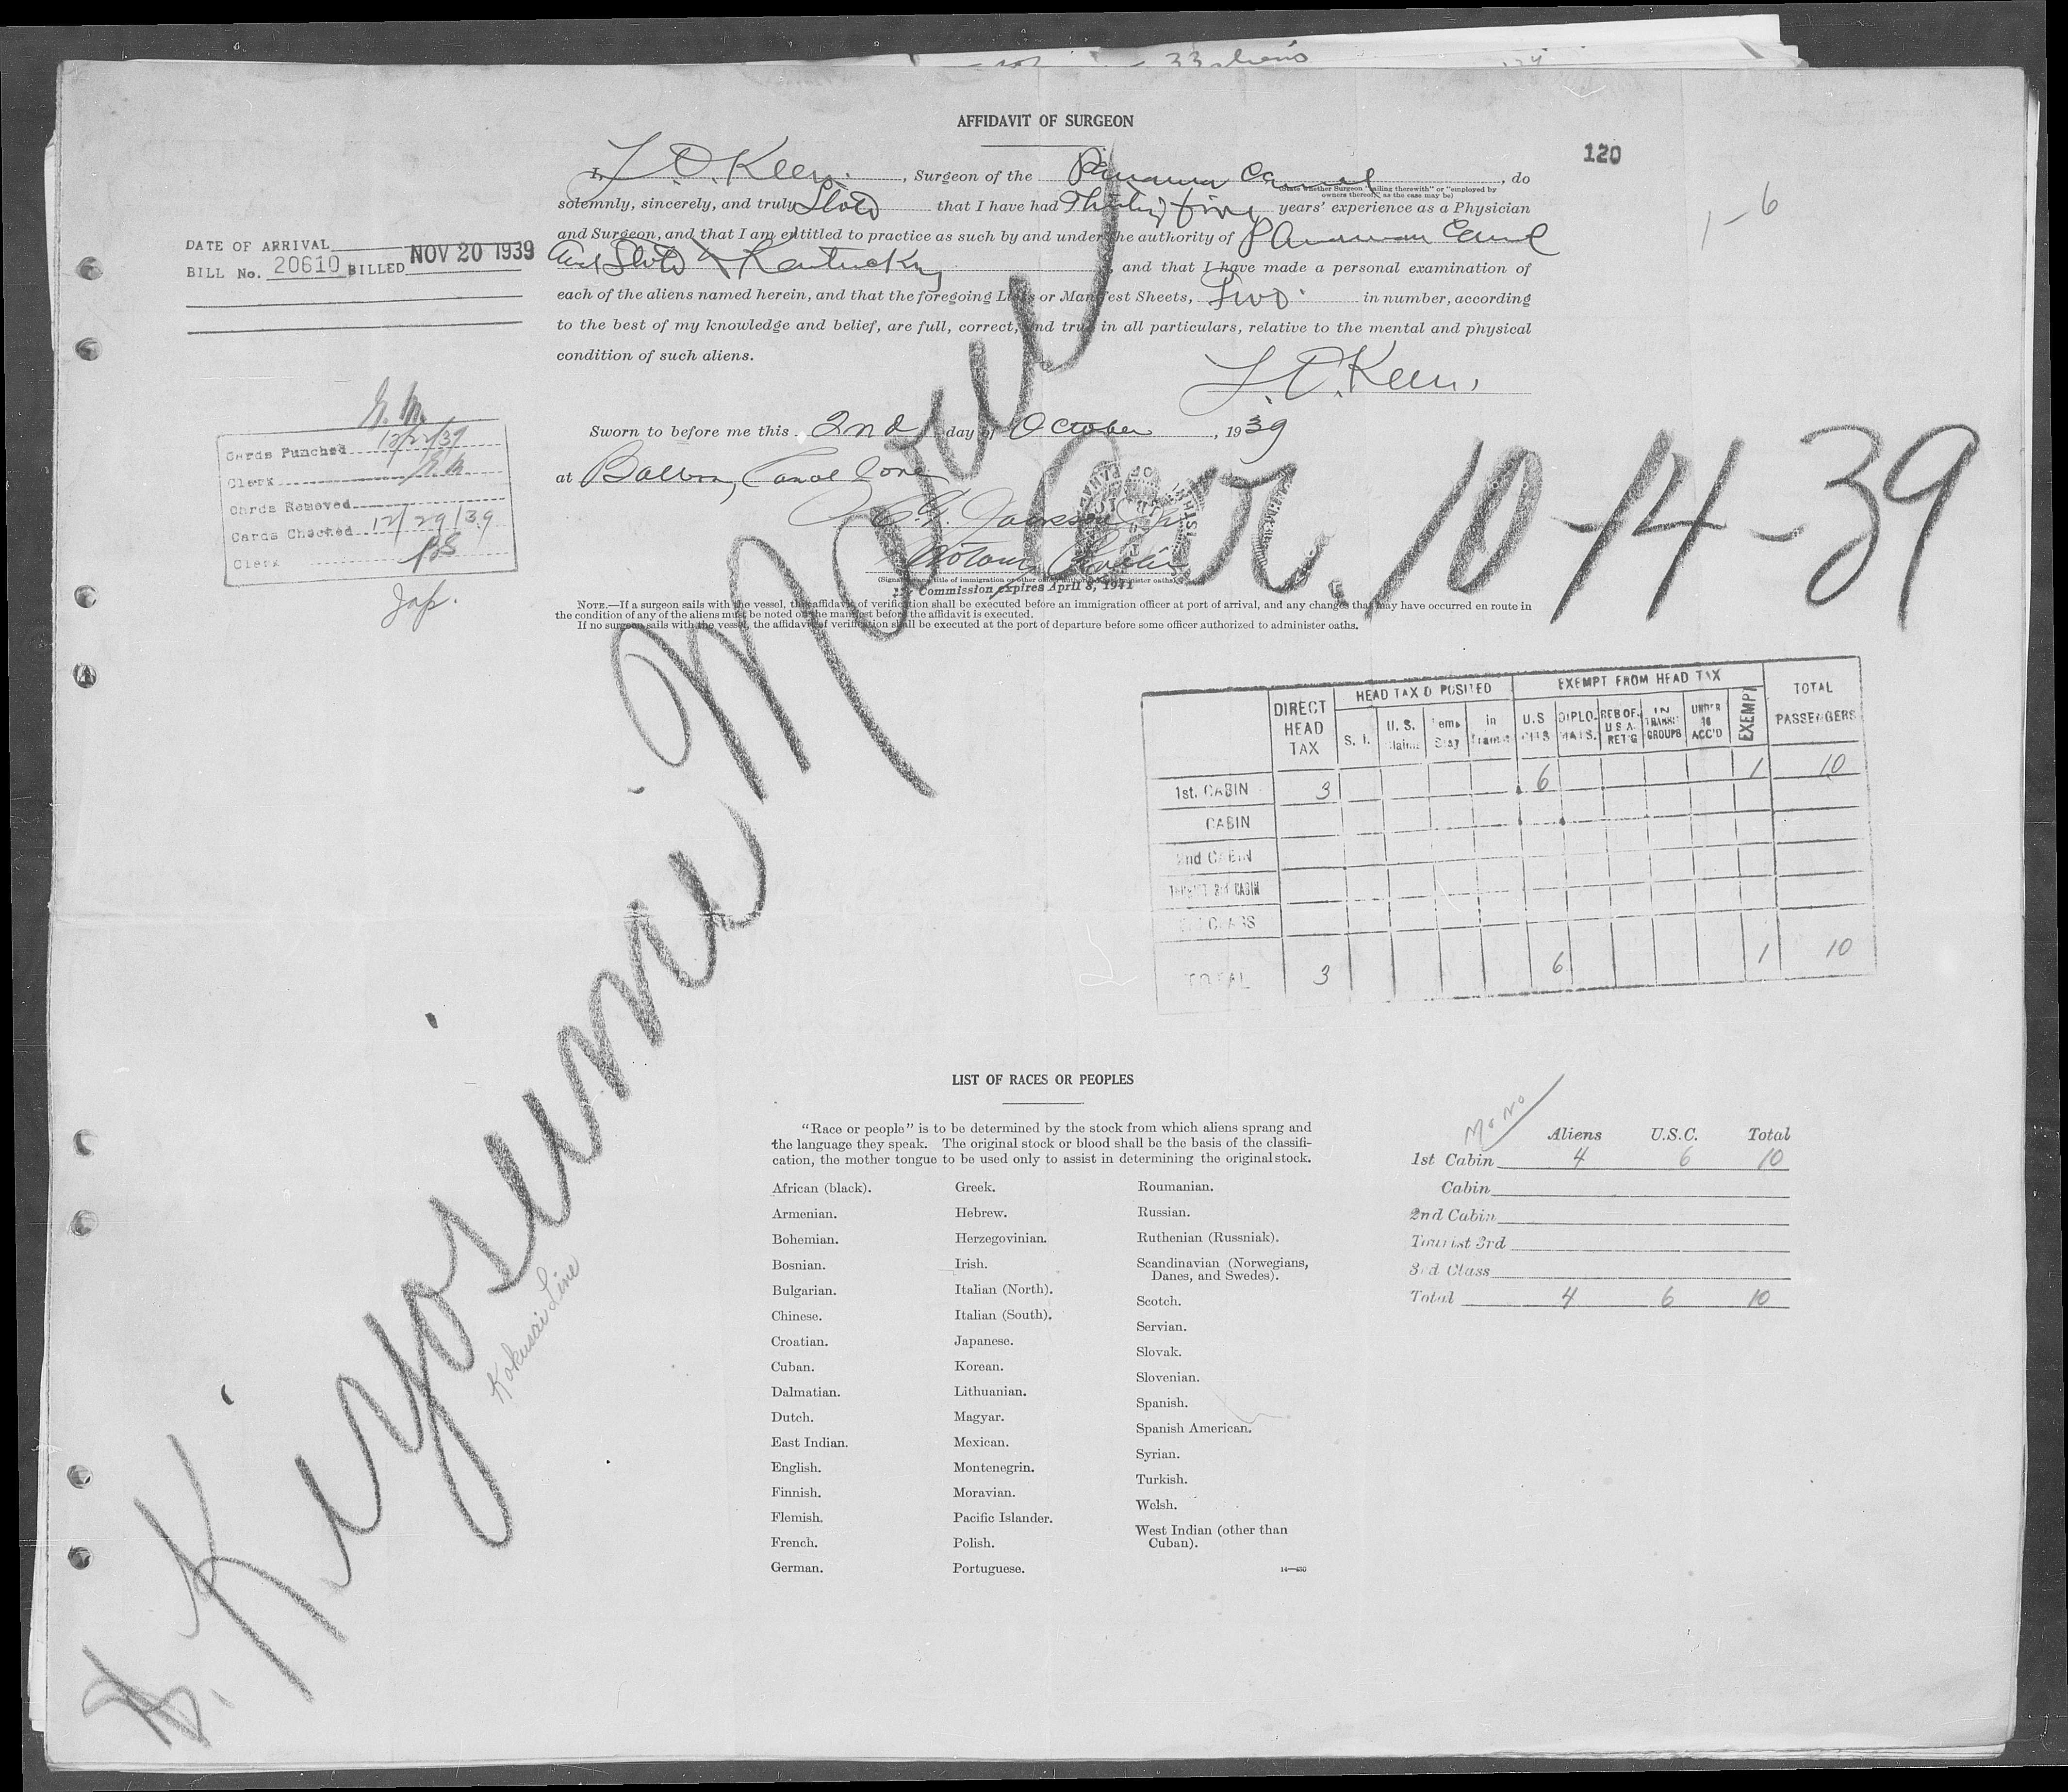 33 aliens
AFFIDAVIT OF SURGEON
120
1-6
I, L. O. Keen. , Surgeon of the Panama Canal , do
(State whether Surgeon "sailing therewith" or "employed by owners thereof," as the case may be)
solemnly, sincerely, and truly State that I have had Thirty five years' experience as a Physician
and Surgeon, and that I am entitled to practice as such by and under the authority of Panama Canal
and State of Kentucky , and that I have made a personal examination of
each of the aliens named herein, and that the foregoing Lists or Manifest Sheets, Two in number, according
to the best of my knowledge and belief, are full, correct, and true in all particulars, relative to the mental and physical
condition of such aliens.
L. O. Keen.
DATE OF ARRIVAL
BILL No. 20610 BILLED NOV 20 1939
Sworn to before me this 2nd day of October , 1939
at Balboa, Canal Zone
Notary Public
(Signature and title of immigration or other officer authorized to administer oaths)
My Commission expires April 8, 1941
NOTE.—If a surgeon sails with the vessel, the affidavit of verification shall be executed before an immigration officer at port of arrival, and any changes that may have occurred en route in
the condition of any of the aliens must be noted on the manifest before the affidavit is executed.
If no surgeon sails with the vessel, the affidavit of verification shall be executed at the port of departure before some officer authorized to administer oaths.
Cards Punched 12/22/39
Clerk
Cards Removed
Cards Checked 12/29/39
Clerk
Jap.
Kiyosumi Maru
Arr. 10-14-39
Kokusai Line
DIRECT HEAD TAX
HEAD TAX DEPOSITED
EXEMPT FROM HEAD TAX
TOTAL PASSENGERS
S. I. U. S. Claim Temp Stay in Transit U.S CITS. DIPLOMATS. RES OF. U S A. RET'G IN TRANSIT GROUPS UNDER 16 ACC'D EXEMPT
1st. CABIN 3 6 1 10
CABIN
2nd CABIN
TOURIST 3rd CABIN
3rd CLASS
TOTAL 3 6 1 10
LIST OF RACES OR PEOPLES
"Race or people" is to be determined by the stock from which aliens sprang and
the language they speak. The original stock or blood shall be the basis of the classifi-
cation, the mother tongue to be used only to assist in determining the original stock.
African (black).
Armenian.
Bohemian.
Bosnian.
Bulgarian.
Chinese.
Croatian.
Cuban.
Dalmatian.
Dutch.
East Indian.
English.
Finnish.
Flemish.
French.
German.
Greek.
Hebrew.
Herzegovinian.
Irish.
Italian (North).
Italian (South).
Japanese.
Korean.
Lithuanian.
Magyar.
Mexican.
Montenegrin.
Moravian.
Pacific Islander.
Polish.
Portuguese.
Roumanian.
Russian.
Ruthenian (Russniak).
Scandinavian (Norwegians,
Danes, and Swedes).
Scotch.
Servian.
Slovak.
Slovenian.
Spanish.
Spanish American.
Syrian.
Turkish.
Welsh.
West Indian (other than
Cuban).
14—430
Aliens U.S.C. Total
1st Cabin 4 6 10
Cabin
2nd Cabin
Tourist 3rd
3rd Class
Total 4 6 10